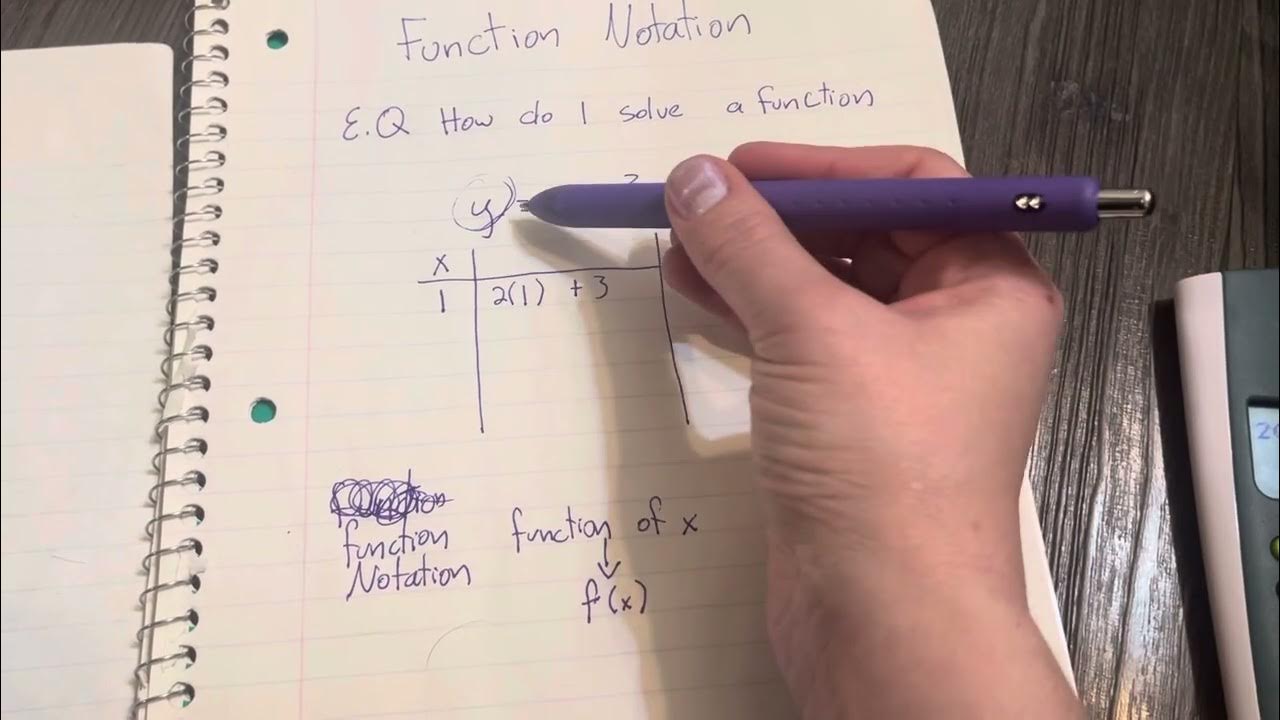 Function Notation
E.Q How do I solve a function
y =
x
1 2(1) + 3
function
Notation
function of x
f(x)